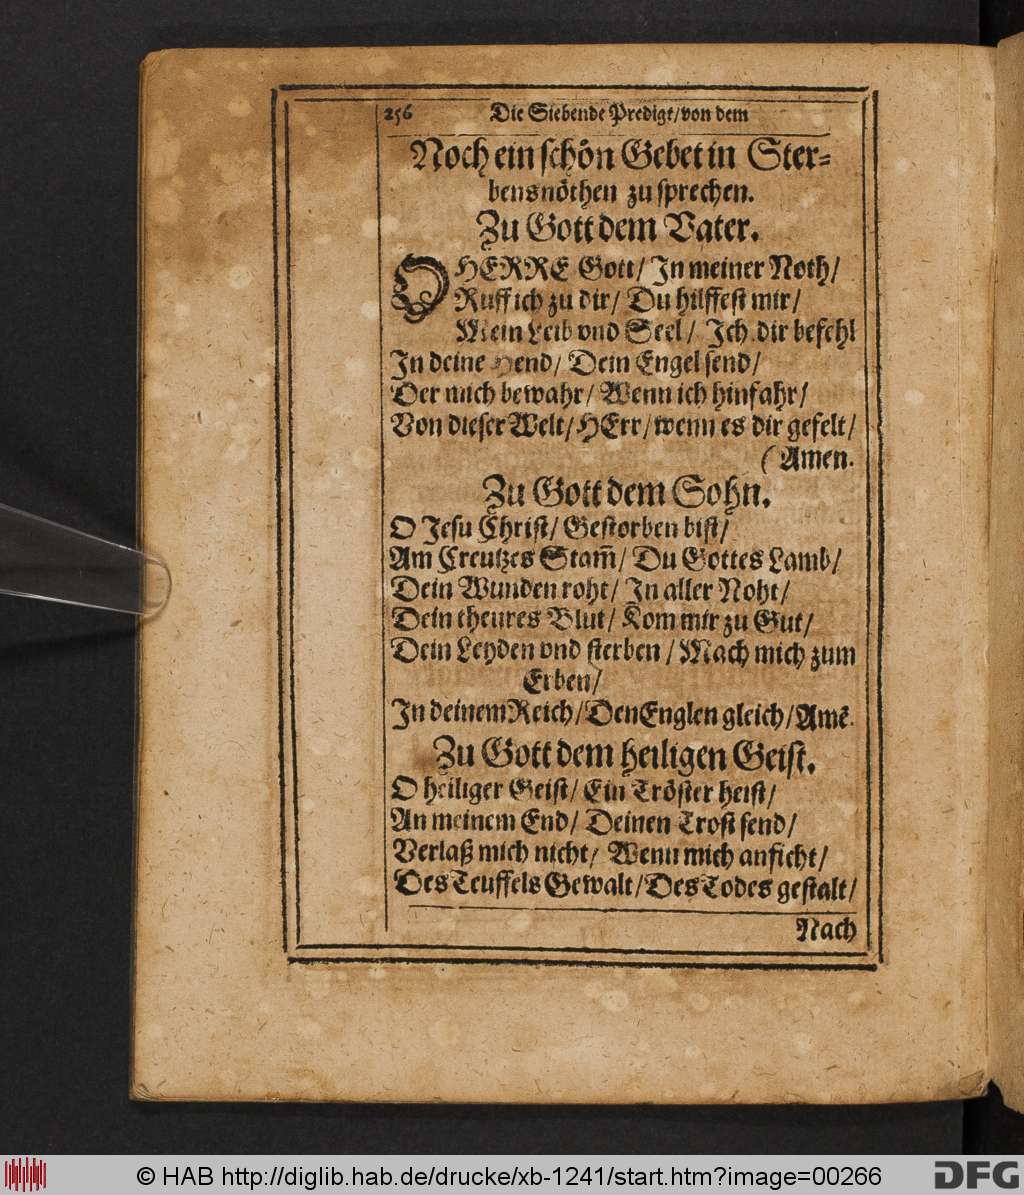 256 Die Siebende Predigt/von dem
Noch ein schön Gebet in Ster=
bensnöthen zu sprechen.
Zu Gott dem Vater.
O HERRE Gott/ In meiner Noth/
Ruff ich zu dir/ Du hilffest mir/
Mein Leib vnd Seel/ Ich dir befehl
In deine Hend/ Dein Engel send/
Der mich bewahr/ Wenn ich hinfahr/
Von dieser Welt/ HErr/ wenn es dir gefelt/
(Amen.
Zu Gott dem Sohn.
O Jesu Christ/ Gestorben bist/
Am Creutzes Stam̃/ Du Gottes Lamb/
Dein Wunden roht/ In aller Noht/
Dein theures Blut/ Kom mir zu Gut/
Dein Leyden vnd sterben/ Mach mich zum
Erben/
In deinem Reich/ Den Englen gleich/ Amẽ.
Zu Gott dem heiligen Geist.
O heiliger Geist/ Ein Tröster heist/
An meinem End/ Deinen Trost send/
Verlaß mich nicht/ Wenn mich anficht/
Des Teuffels Gewalt/ Des Todes gestalt/
Nach
© HAB http://diglib.hab.de/drucke/xb-1241/start.htm?image=00266
DFG